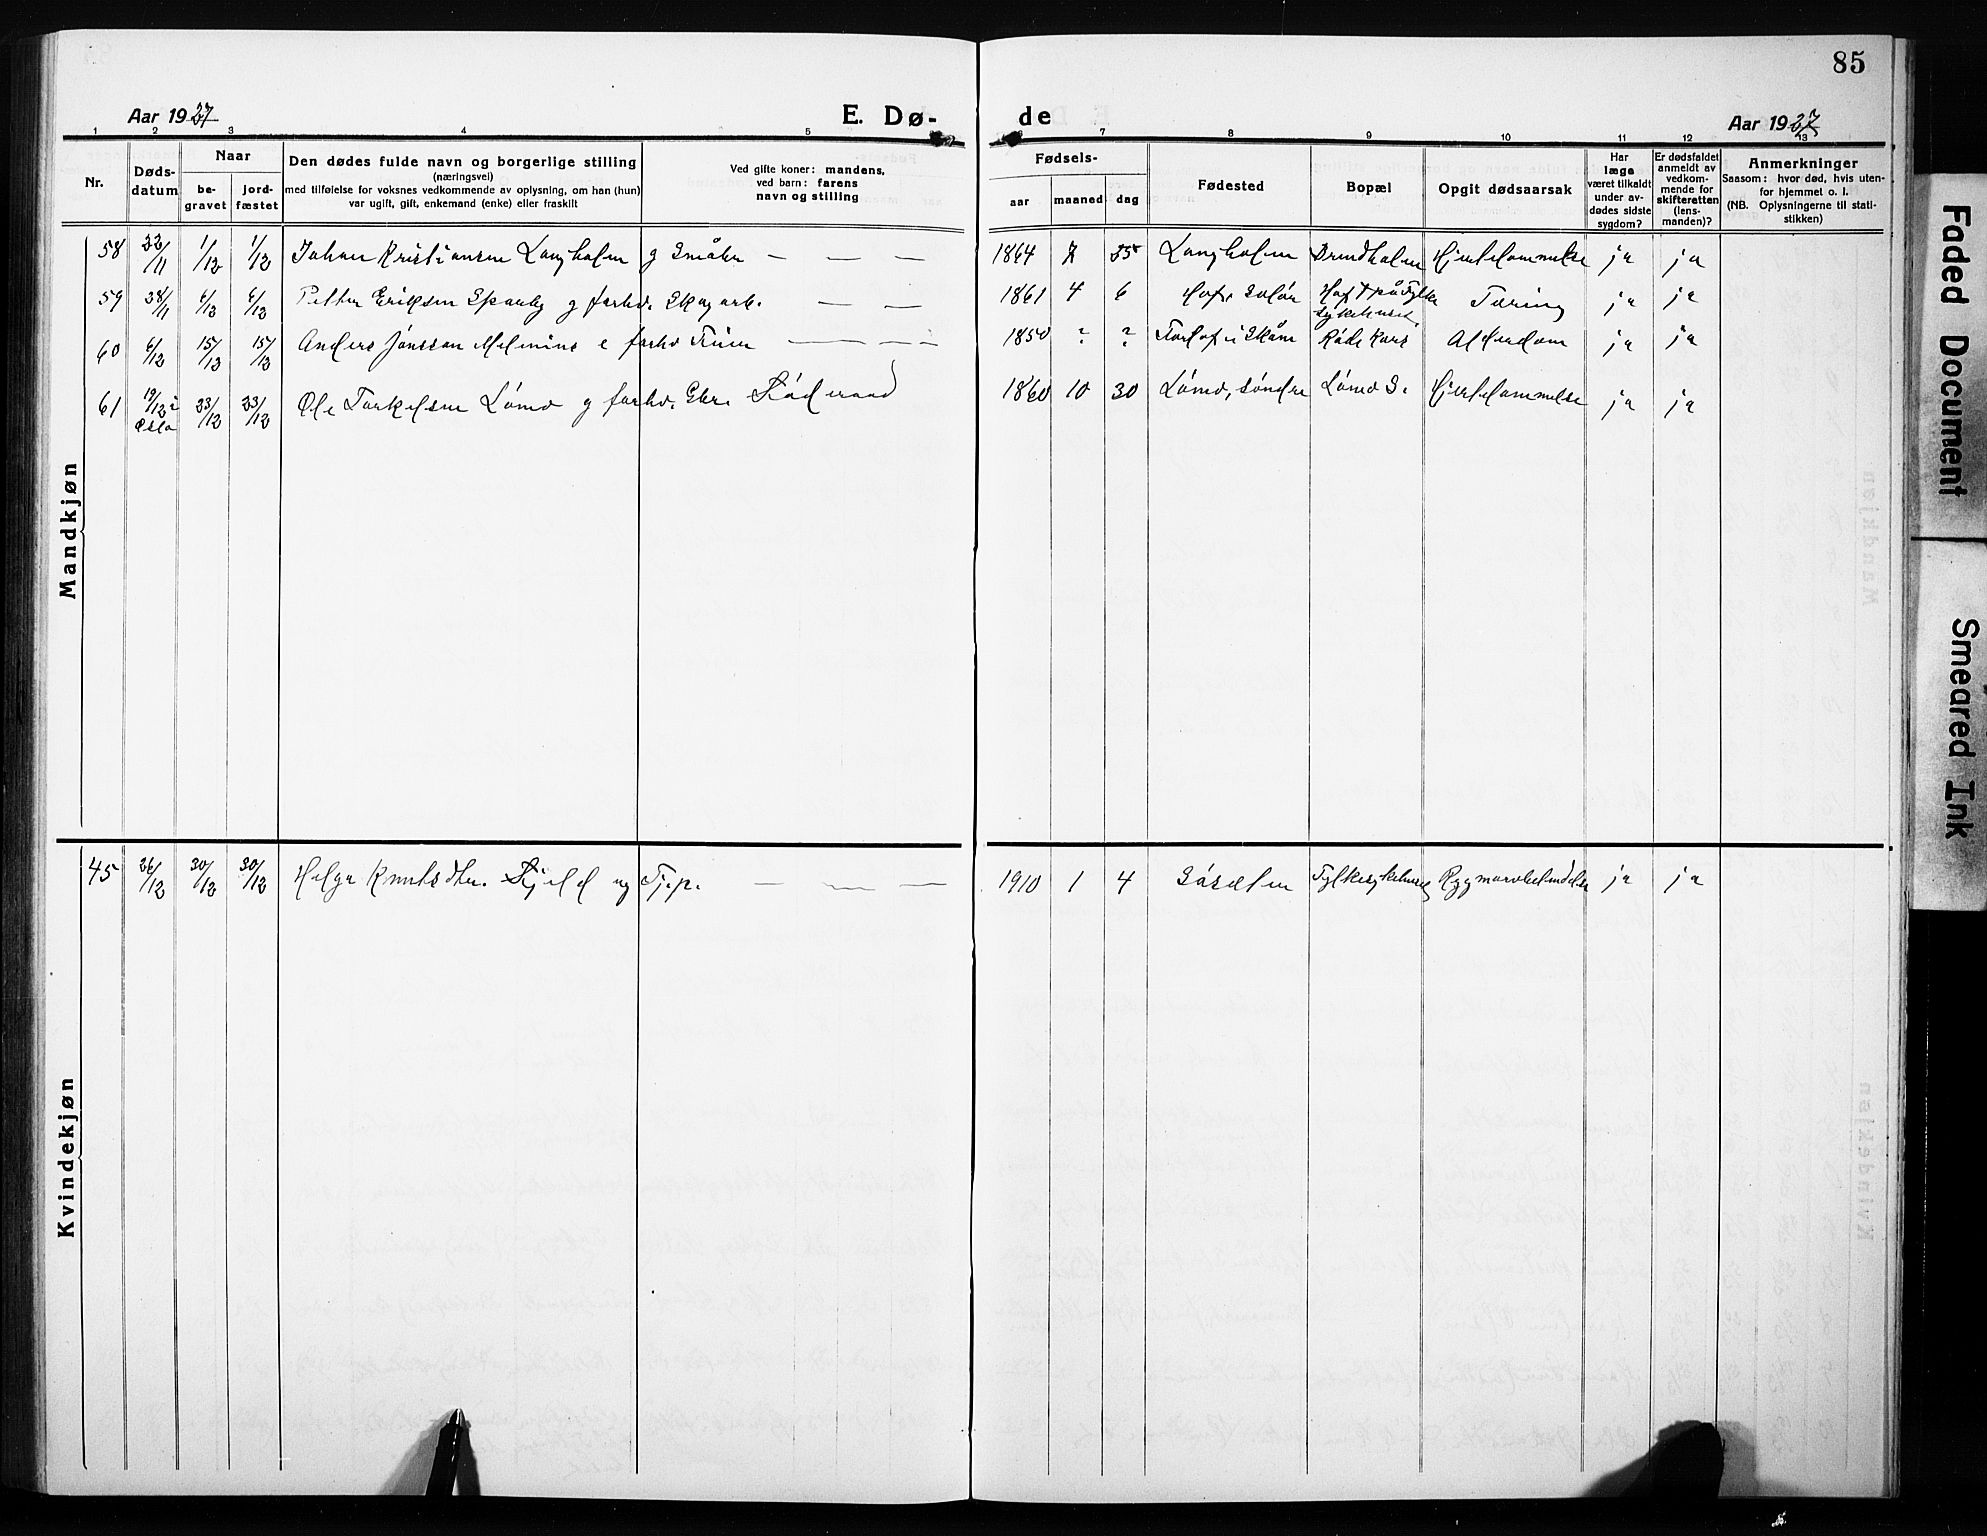 85
Aar 1927
E. Dø-
de
Aar 1927
1 2 3 4 5
6 7 8 9 10 11 12 13
Nr.
Døds-
datum
Naar
be-
gravet
jord-
fæstet
Den dødes fulde navn og borgerlige stilling
(næringsvei)
med tilføielse for voksnes vedkommende av oplysning, om han (hun)
var ugift, gift, enkemand (enke) eller fraskilt
Ved gifte koner: mandens,
ved barn: farens
navn og stilling
Fødsels-
aar
maaned
dag
Fødested
Bopæl
Opgit dødsaarsak
Har
læge
været tilkaldt
under av-
dødes sidste
sygdom?
Er dødsfaldet
anmeldt av
vedkom-
mende for
skifteretten
(lens-
manden)?
Anmerkninger
Saasom: hvor død, hvis uten-
for hjemmet o. l.
(NB. Oplysningerne til stati-
stikken)
Mandkjøn
58 22/11 1/12 1/12 Johan Kristiansen Langholm g Småbr — — — 1864 7 25 Langholm Hjertelammelse ja ja
59 28/11 6/12 6/12 Petter Eriksen g forhv. Skogarb. — — 1861 4 6 Hof, Solør Hof † på Fylke
sykehuset. Tæring ja ja
60 6/12 15/12 15/12 Anders Jönsson e forhv — — — 1850 ? ? i Skåne Røde Kors Alderdom ja ja
61 19/12 i
Oslo 23/12 23/12 Ole Torkelsen Lømo g forhv. Gbr. 1860 10 30 Lømo, søndre Lømo S. Hjertelammelse ja ja
Kvindekjøn
45 26/12 30/12 30/12 Helga Knutsdtr. ug Tj.p. — — — 1910 1 4 Fylkesykehuset Rygmarvbetendelse ja ja
Faded Document
Smeared Ink